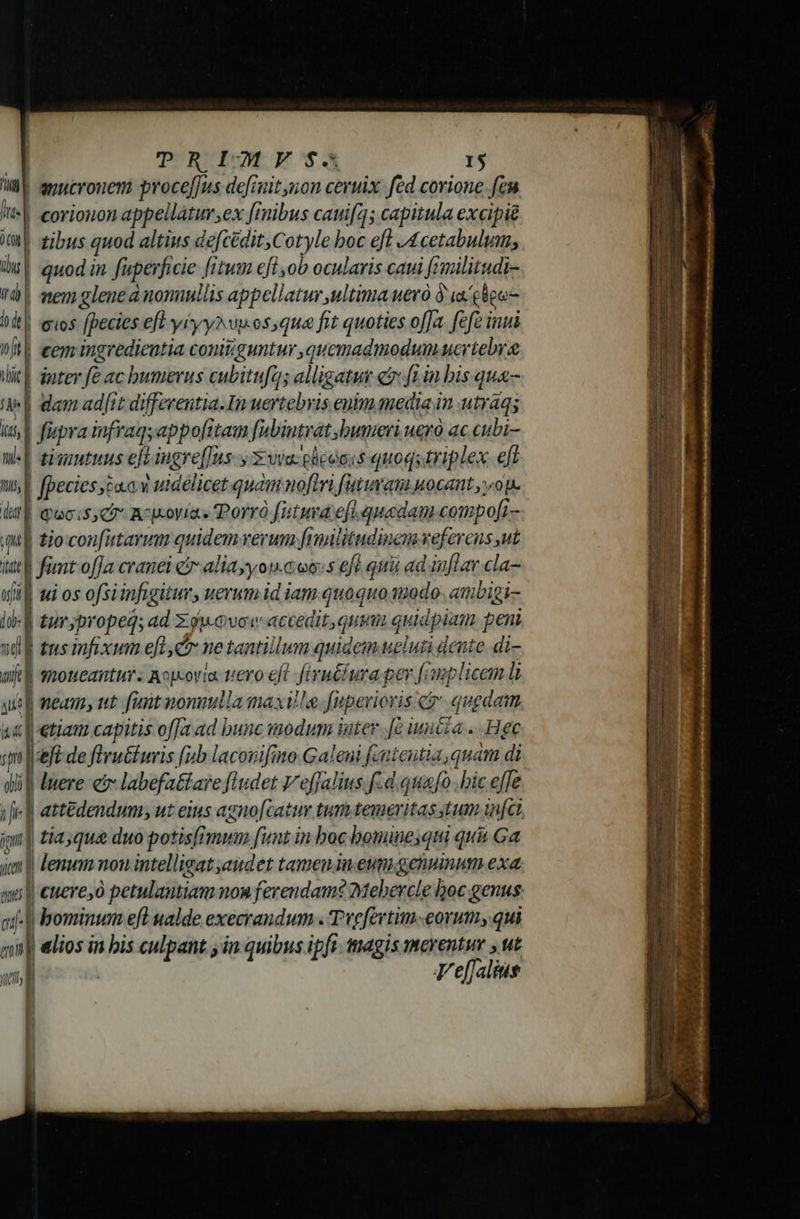 PRIMVS. 15
mucronem processus definit, non ceruix sed corione seu
corionon appellatur, ex finibus cauisq; capitula excipiē
tibus quod altius descēdit, Cotyle hoc est Acetabulum,
quod in superficie situm est, ob ocularis caui similitudi-
nem glene à nonnullis appellatur, ultima uerò
species est γίγγλυμος, quæ fit quoties ossa sese inui
cem ingredientia coniūguntur, quemadmodum uertebræ
inter se ac humerus cubitusq; alligatur & si in his quæ-
dam adsit differentia. In uertebris enim media in utrāq;
supra infraq; appositam subintrat, humeri uerò ac cubi-
ti mutuus est ingressus, quoq; triplex est
species, ῥαφὴ uidelicet quàm nostri suturam uocant, γόμ-
φωσις, & ἁρμονία. Porrò sutura est quædam composi-
tio consutarum quidem rerum similitudinem referens, ut
sunt ossa cranei & alia, γόμφωσις est quū ad instar cla-
ui os ofsi infigitur, uerum id iam quoquo modo ambigi-
tur, propeq; ad accedit, quum quidpiam peni
tus infixum est, & ne tantillum quidem ueluti dente di-
moueantur. ἁρμονία uero est structura per simplicem li
neam, ut sunt nonnulla maxillæ superioris & quædam
etiam capitis ossa ad hunc modum inter se iuncta. Hęc
est de structuris sub laconismo Galeni sententia, quàm di
luere & labefactare studet Vessalius sed quæso hic esse
attēdendum, ut eius agnoscatur tum temeritas, tum insci
tia, quæ duo potissimum sunt in hoc homine, qui quū Ga
lenum non intelligat, audet tamen in eum genuinum exa
cuere, ò petulantiam non ferendam? Mehercle hoc genus
hominum est ualde execrandum. Præsertim eorum, qui
alios in his culpant, in quibus ipsi magis merentur, ut
Vessalius